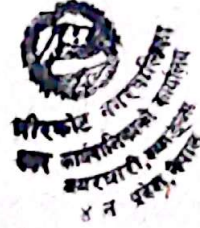 भीरकोट नगरपालिका
नगर कार्यपालिकाको कार्यालय
बयरघारी, स्याङ्जा
४ न प्रदेश, नेपाल